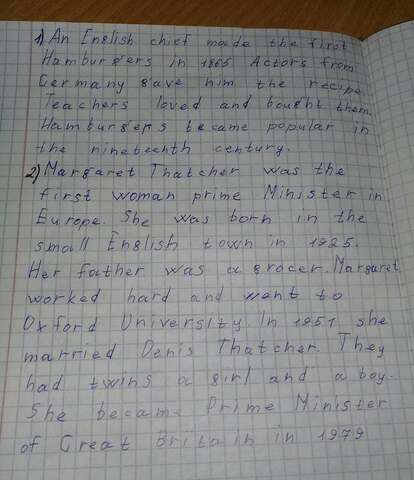 1) An English chief made the first
Hamburgers in 1865 Actors from
Germany gave him the recipe
Teachers loved and bought them.
Hamburgers became popular in
the nineteenth century.
2) Margaret Thatcher was the
first woman prime Minister in
Europe. She was born in the
small English town in 1925.
Her father was a grocer. Margaret
worked hard and went to
Oxford University. In 1951 she
married Denis Thatcher. They
had twins a girl and a boy.
She became Prime Minister
of Great Britain in 1979